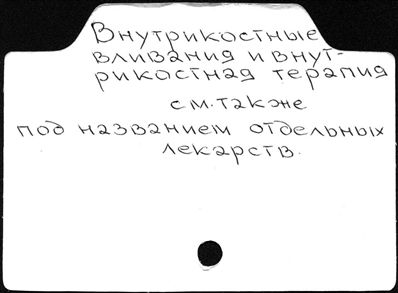 Внутрикостные
вливания и внут-
рикостная терапия
см. также
под названием отдельных
лекарств.